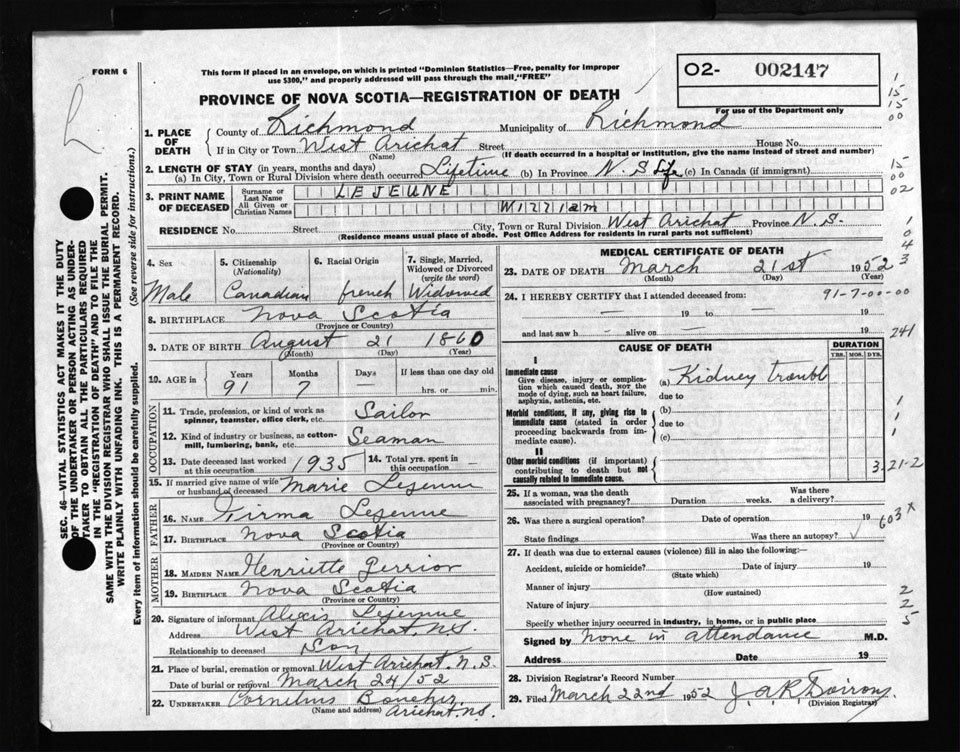 FORM 6
This form if placed in an envelope, on which is printed "Dominion Statistics—Free, penalty for improper
use $300," and properly addressed will pass through the mail "FREE"
PROVINCE OF NOVA SCOTIA—REGISTRATION OF DEATH
O2- 002147
For use of the Department only
1. PLACE OF DEATH
County of Richmond Municipality of Richmond
If in City or Town West Arichat Street House No.
(Name) (If death occurred in a hospital or institution, give the name instead of street and number)
2. LENGTH OF STAY (in years, months and days)
(a) In City, Town or Rural Division where death occurred Lifetime (b) In Province N.S Life (c) In Canada (if immigrant)
3. PRINT NAME OF DECEASED
Surname or Last Name LEJEUNE
All Given or Christian Names William
RESIDENCE No. Street City, Town or Rural Division West Arichat Province N.S.
(Residence means usual place of abode. Post Office Address for residents in rural parts not sufficient)
4. Sex
Male
5. Citizenship (Nationality)
Canadian
6. Racial Origin
french
7. Single, Married, Widowed or Divorced (write the word)
Widowed
8. BIRTHPLACE Nova Scotia
(Province or Country)
9. DATE OF BIRTH August 21 1860
(Month) (Day) (Year)
10. AGE in Years Months Days If less than one day old
91 7 — hrs. or min.
OCCUPATION
11. Trade, profession, or kind of work as spinner, teamster, office clerk, etc. Sailor
12. Kind of industry or business, as cotton-mill, lumbering, bank, etc. Seaman
13. Date deceased last worked at this occupation 1935 14. Total yrs. spent in this occupation —
15. If married give name of wife or husband of deceased Marie Lejeune
FATHER
16. NAME Firma Lejeune
17. BIRTHPLACE Nova Scotia
(Province or Country)
MOTHER
18. MAIDEN NAME Henriette Perrior
19. BIRTHPLACE Nova Scotia
(Province or Country)
20. Signature of informant Alexis Lejeune
Address West Arichat. N.S.
Relationship to deceased Son
21. Place of burial, cremation or removal West Arichat. N.S.
Date of burial or removal March 24/52
22. UNDERTAKER Cornelius Boucher
(Name and address) Arichat. N.S.
MEDICAL CERTIFICATE OF DEATH
23. DATE OF DEATH March 21st 1952
(Month) (Day) (Year)
24. I HEREBY CERTIFY that I attended deceased from: 91-7-00-00
— 19 to — 19
and last saw h alive on — 19
CAUSE OF DEATH
DURATION
YRS. MOS. DYS.
I
Immediate cause
Give disease, injury or complication which caused death, NOT the mode of dying, such as heart failure, asphyxia, asthenia, etc.
(a) Kidney troubl
due to
Morbid conditions, if any, giving rise to immediate cause (stated in order proceeding backwards from immediate cause).
(b)
due to
(c)
II
Other morbid conditions (if important) contributing to death but not causally related to immediate cause.
25. If a woman, was the death associated with pregnancy? Duration weeks. Was there a delivery?
26. Was there a surgical operation? Date of operation 19
State findings Was there an autopsy?
27. If death was due to external causes (violence) fill in also the following:—
Accident, suicide or homicide? Date of injury 19
(State which)
Manner of injury
(How sustained)
Nature of injury
Specify whether injury occurred in industry, in home, or in public place
Signed by None in attendance M.D.
Address Date 19
28. Division Registrar's Record Number
29. Filed March 22nd 1952 J. A. R. Doiron
(Division Registrar)
SEC. 46—VITAL STATISTICS ACT MAKES IT THE DUTY
OF THE UNDERTAKER OR PERSON ACTING AS UNDER-
TAKER TO OBTAIN ALL THE PARTICULARS REQUIRED
IN THE "REGISTRATION OF DEATH" AND TO FILE THE
SAME WITH THE DIVISION REGISTRAR WHO SHALL ISSUE THE BURIAL PERMIT.
WRITE PLAINLY WITH UNFADING INK. THIS IS A PERMANENT RECORD.
(See reverse side for instructions.)
Every item of information should be carefully supplied.
1
15
15
00
15
00
02
1
0
4
3
241
1
1
1
3-21-2
603 x
2
2
5